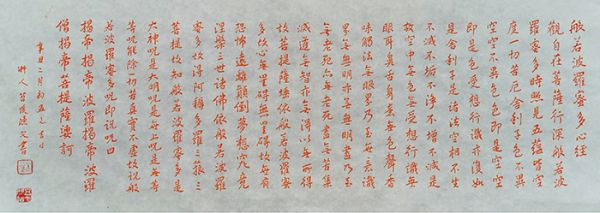 般若波羅蜜多心經
觀自在菩薩行深般若波
羅蜜多時照見五蘊皆空
度一切苦厄舍利子色不異
空空不異色色即是空空
即是色受想行識亦復如
是舍利子是諸法空相不生
不滅不垢不淨不增不減是
故空中無色無受想行識無
眼耳鼻舌身意無色聲香
味觸法無眼界乃至無意識
界無無明亦無無明盡乃至
無老死亦無老死盡無苦集
滅道無智亦無得以無所得
故菩提薩埵依般若波羅蜜
多故心無罣礙無罣礙故無有
恐怖遠離顛倒夢想究竟
涅槃三世諸佛依般若波羅
蜜多故得阿耨多羅三藐三
菩提故知般若波羅蜜多是
大神咒是大明咒是無上咒是無等
等咒能除一切苦真實不虛故說般
若波羅蜜多咒即說咒曰
揭帝揭帝波羅揭帝波羅
僧揭帝菩提薩婆訶
辛丑二月初五之吉日